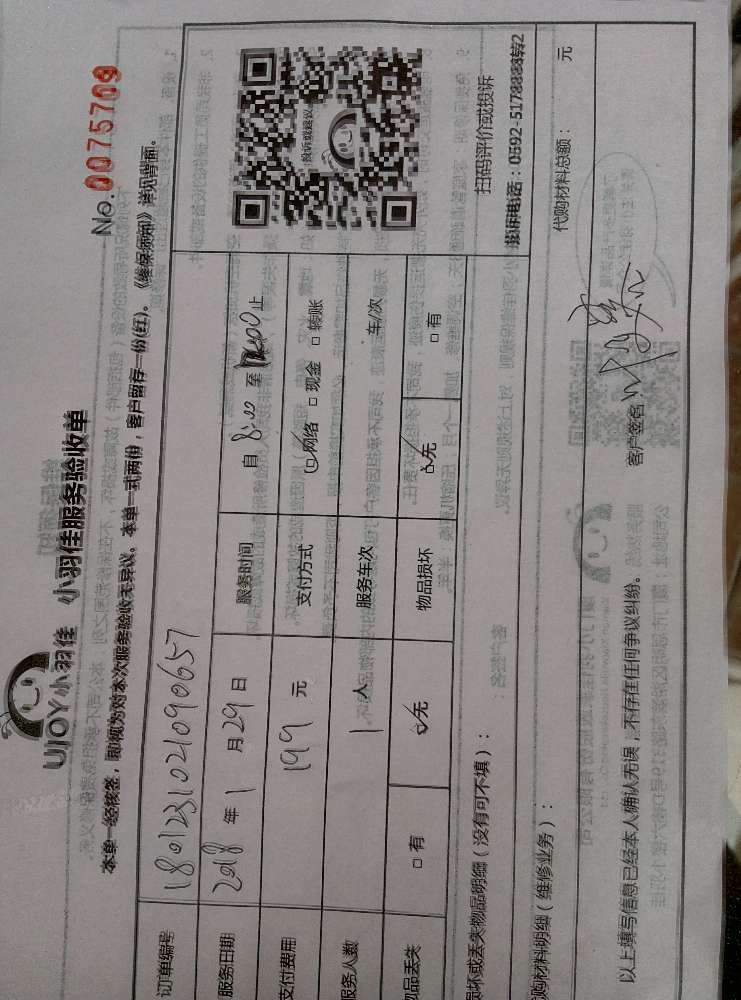 UJOY小羽佳 小羽佳服务验收单
No. 0075709
本单一经核签，即视为对本次服务验收无异议。本单一式两份，客户留存一份(红)。《维保须知》详见背面。
订单编号 180123102109065 7
服务日期 2018 年 1 月 29 日 服务时间 自 8:00 至 12:00 止
支付费用 199 元 支付方式 ☑网络 □现金 □转账
服务人数 1 人 服务车次 车/次
物品丢失 □有 ☑无 物品损坏 ☑无 □有
投诉或建议
扫码评价或投诉
投诉电话：0592-5178888转2
损坏或丢失物品明细（没有可不填）：
代购材料明细（维修业务）： 代购材料总额： 元
以上填写信息已经本人确认无误，不存在任何争议纠纷。 客户签名